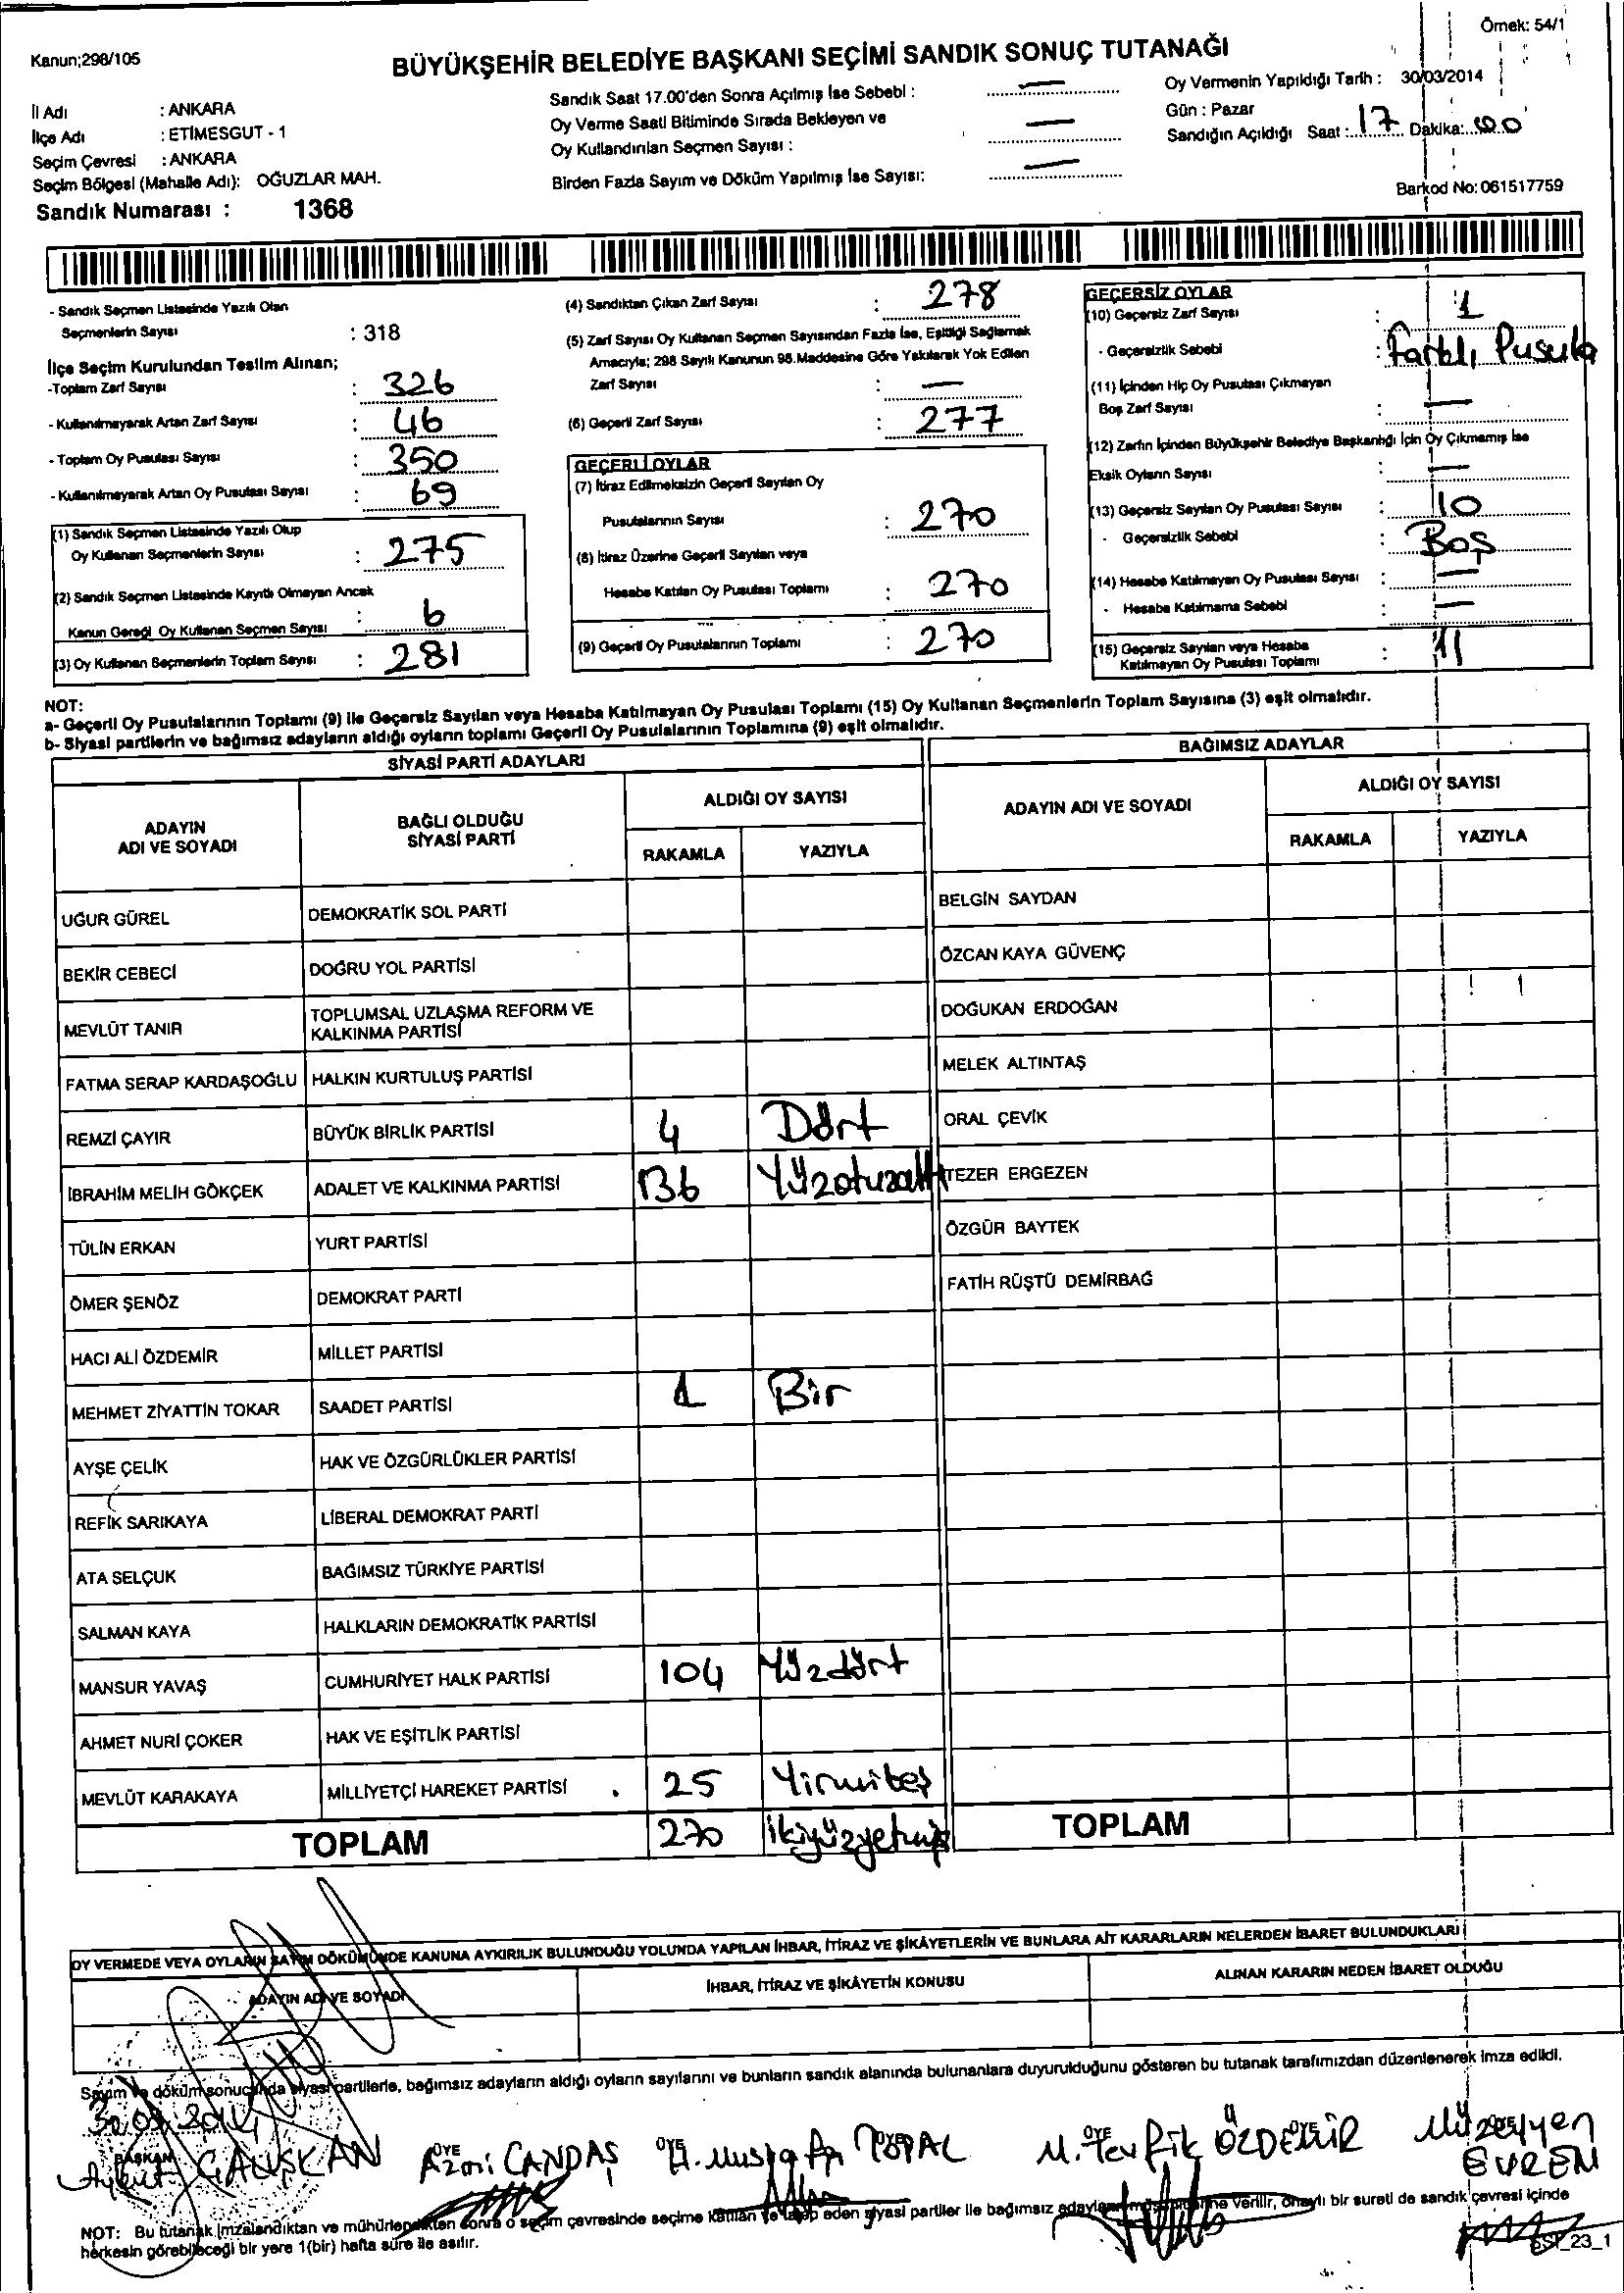 Örnek: 54/1
Kanun;298/105
BÜYÜKŞEHİR BELEDİYE BAŞKANI SEÇİMİ SANDIK SONUÇ TUTANAĞI
İl Adı : ANKARA
İlçe Adı : ETİMESGUT - 1
Seçim Çevresi : ANKARA
Seçim Bölgesi (Mahalle Adı): OĞUZLAR MAH.
Sandık Numarası : 1368
Sandık Saat 17.00'den Sonra Açılmış İse Sebebi : —
Oy Verme Saati Bitiminde Sırada Bekleyen ve
Oy Kullandırılan Seçmen Sayısı : —
Birden Fazla Sayım ve Döküm Yapılmış İse Sayısı: —
Oy Vermenin Yapıldığı Tarih : 30/03/2014
Gün : Pazar
Sandığın Açıldığı Saat : 17 Dakika: 00
Barkod No: 061517759
- Sandık Seçmen Listesinde Yazılı Olan
Seçmenlerin Sayısı : 318
İlçe Seçim Kurulundan Teslim Alınan;
-Toplam Zarf Sayısı : 326
- Kullanılmayarak Artan Zarf Sayısı : 46
- Toplam Oy Pusulası Sayısı : 350
- Kullanılmayarak Artan Oy Pusulası Sayısı : 69
(1) Sandık Seçmen Listesinde Yazılı Olup
Oy Kullanan Seçmenlerin Sayısı : 275
(2) Sandık Seçmen Listesinde Kayıtlı Olmayan Ancak
Kanun Gereği Oy Kullanan Seçmen Sayısı : 6
(3) Oy Kullanan Seçmenlerin Toplam Sayısı : 281
(4) Sandıktan Çıkan Zarf Sayısı : 278
(5) Zarf Sayısı Oy Kullanan Seçmen Sayısından Fazla İse, Eşitliği Sağlamak
Amacıyla; 298 Sayılı Kanunun 98.Maddesine Göre Yakılarak Yok Edilen
Zarf Sayısı : —
(6) Geçerli Zarf Sayısı : 277
GEÇERLİ OYLAR
(7) İtiraz Edilmeksizin Geçerli Sayılan Oy
Pusulalarının Sayısı : 270
(8) İtiraz Üzerine Geçerli Sayılan veya
Hesaba Katılan Oy Pusulası Toplamı : 270
(9) Geçerli Oy Pusulalarının Toplamı : 270
GEÇERSİZ OYLAR
(10) Geçersiz Zarf Sayısı : 1
- Geçersizlik Sebebi : Farklı Pusula
(11) İçinden Hiç Oy Pusulası Çıkmayan
Boş Zarf Sayısı : —
(12) Zarfın İçinden Büyükşehir Belediye Başkanlığı İçin Oy Çıkmamış İse
Eksik Oyların Sayısı : —
(13) Geçersiz Sayılan Oy Pusulası Sayısı : 10
- Geçersizlik Sebebi : Boş
(14) Hesaba Katılmayan Oy Pusulası Sayısı : —
- Hesaba Katılmama Sebebi : —
(15) Geçersiz Sayılan veya Hesaba
Katılmayan Oy Pusulası Toplamı : 11
NOT:
a- Geçerli Oy Pusulalarının Toplamı (9) ile Geçersiz Sayılan veya Hesaba Katılmayan Oy Pusulası Toplamı (15) Oy Kullanan Seçmenlerin Toplam Sayısına (3) eşit olmalıdır.
b- Siyasi partilerin ve bağımsız adayların aldığı oyların toplamı Geçerli Oy Pusulalarının Toplamına (9) eşit olmalıdır.
SİYASİ PARTİ ADAYLARI
ADAYIN ADI VE SOYADI
BAĞLI OLDUĞU SİYASİ PARTİ
ALDIĞI OY SAYISI
RAKAMLA YAZIYLA
UĞUR GÜREL DEMOKRATİK SOL PARTİ
BEKİR CEBECİ DOĞRU YOL PARTİSİ
MEVLÜT TANIR TOPLUMSAL UZLAŞMA REFORM VE
KALKINMA PARTİSİ
FATMA SERAP KARDAŞOĞLU HALKIN KURTULUŞ PARTİSİ
REMZİ ÇAYIR BÜYÜK BİRLİK PARTİSİ 4 Dört
İBRAHİM MELİH GÖKÇEK ADALET VE KALKINMA PARTİSİ 136 Yüzotuzaltı
TÜLİN ERKAN YURT PARTİSİ
ÖMER ŞENÖZ DEMOKRAT PARTİ
HACI ALİ ÖZDEMİR MİLLET PARTİSİ
MEHMET ZİYATTİN TOKAR SAADET PARTİSİ 1 Bir
AYŞE ÇELİK HAK VE ÖZGÜRLÜKLER PARTİSİ
REFİK SARIKAYA LİBERAL DEMOKRAT PARTİ
ATA SELÇUK BAĞIMSIZ TÜRKİYE PARTİSİ
SALMAN KAYA HALKLARIN DEMOKRATİK PARTİSİ
MANSUR YAVAŞ CUMHURİYET HALK PARTİSİ 104 Yüzdört
AHMET NURİ ÇOKER HAK VE EŞİTLİK PARTİSİ
MEVLÜT KARAKAYA MİLLİYETÇİ HAREKET PARTİSİ 25 Yirmibeş
TOPLAM 270 İkiyüzyetmiş
BAĞIMSIZ ADAYLAR
ADAYIN ADI VE SOYADI
ALDIĞI OY SAYISI
RAKAMLA YAZIYLA
BELGİN SAYDAN
ÖZCAN KAYA GÜVENÇ
DOĞUKAN ERDOĞAN
MELEK ALTINTAŞ
ORAL ÇEVİK
TEZER ERGEZEN
ÖZGÜR BAYTEK
FATİH RÜŞTÜ DEMİRBAĞ
TOPLAM
OY VERMEDE VEYA OYLARIN SAYIM DÖKÜMÜNDE KANUNA AYKIRILIK BULUNDUĞU YOLUNDA YAPILAN İHBAR, İTİRAZ VE ŞİKÂYETLERİN VE BUNLARA AİT KARARLARIN NELERDEN İBARET BULUNDUKLARI
ADAYIN ADI VE SOYADI
İHBAR, İTİRAZ VE ŞİKÂYETİN KONUSU
ALINAN KARARIN NEDEN İBARET OLDUĞU
Sayım ve döküm sonucunda siyasi partilerle, bağımsız adayların aldığı oyların sayılarını ve bunların sandık alanında bulunanlara duyurulduğunu gösteren bu tutanak tarafımızdan düzenlenerek imza edildi.
30.03.2014
BAŞKAN ÜYE ÜYE ÜYE ÜYE
Aykut ÇALIŞKAN Azmi CANDAŞ H. Mustafa TOPAL M. Tevfik ÖZDEMİR Müzeyyen
EVREN
NOT: Bu tutanak imzalandıktan ve mühürlendikten sonra o seçim çevresinde seçime katılan ve talep eden siyasi partiler ile bağımsız aday verilir, onaylı bir sureti de sandık çevresi içinde
herkesin görebileceği bir yere 1(bir) hafta süre ile asılır.
SST_23_1